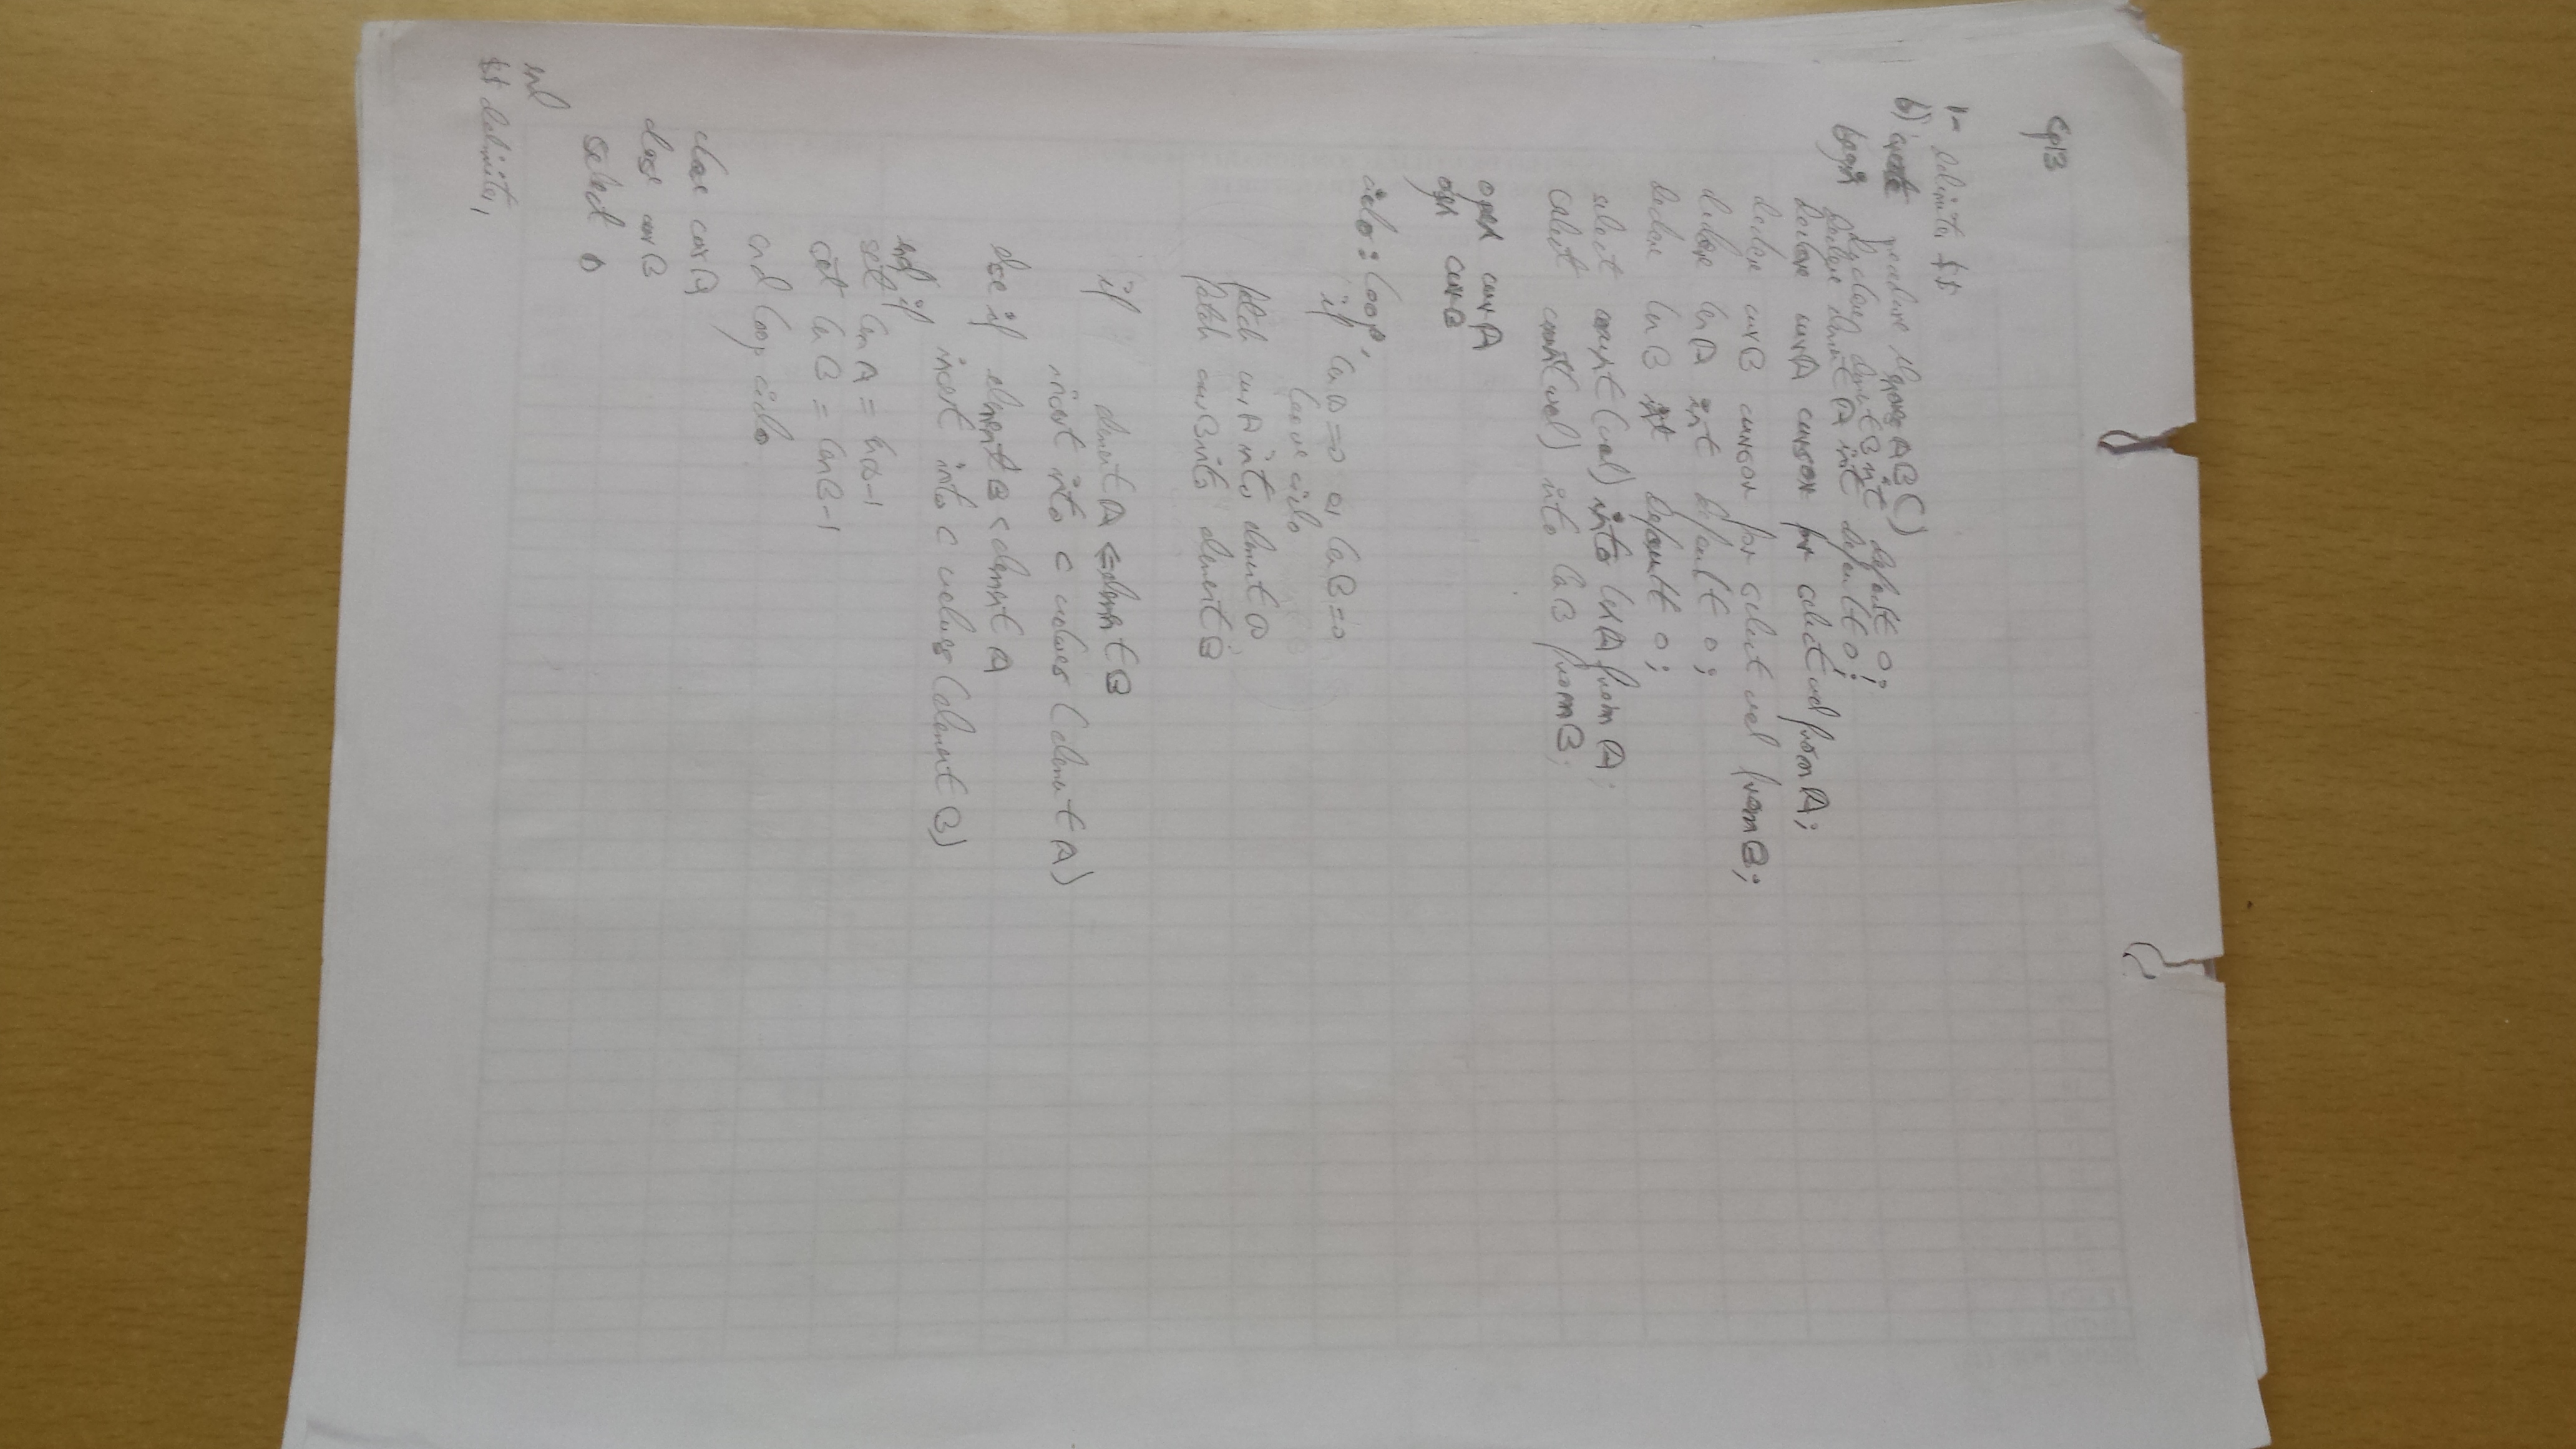 1- delimiter $$
b) create procedure AB()
begin declare elementB int default 0;
declare elementA int default 0;
declare curA cursor for select val from A;
declare curB cursor for select val from B;
declare lenA int default 0;
declare lenB int default 0;
select count(val) into lenA from A;
select count(val) into lenB from B;
open curA
open curB
ciclo: loop
if lenA => or lenB =>
leave ciclo
fetch curA into elementA
fetch curB into elementB
if elementA <= elementB
insert into C values (elementA)
else if elementB < elementA
insert into C values (elementB)
end if
set lenA = lenA-1
set lenB = lenB-1
end loop ciclo
close curA
close curB
select
end
$$ delimiter ;